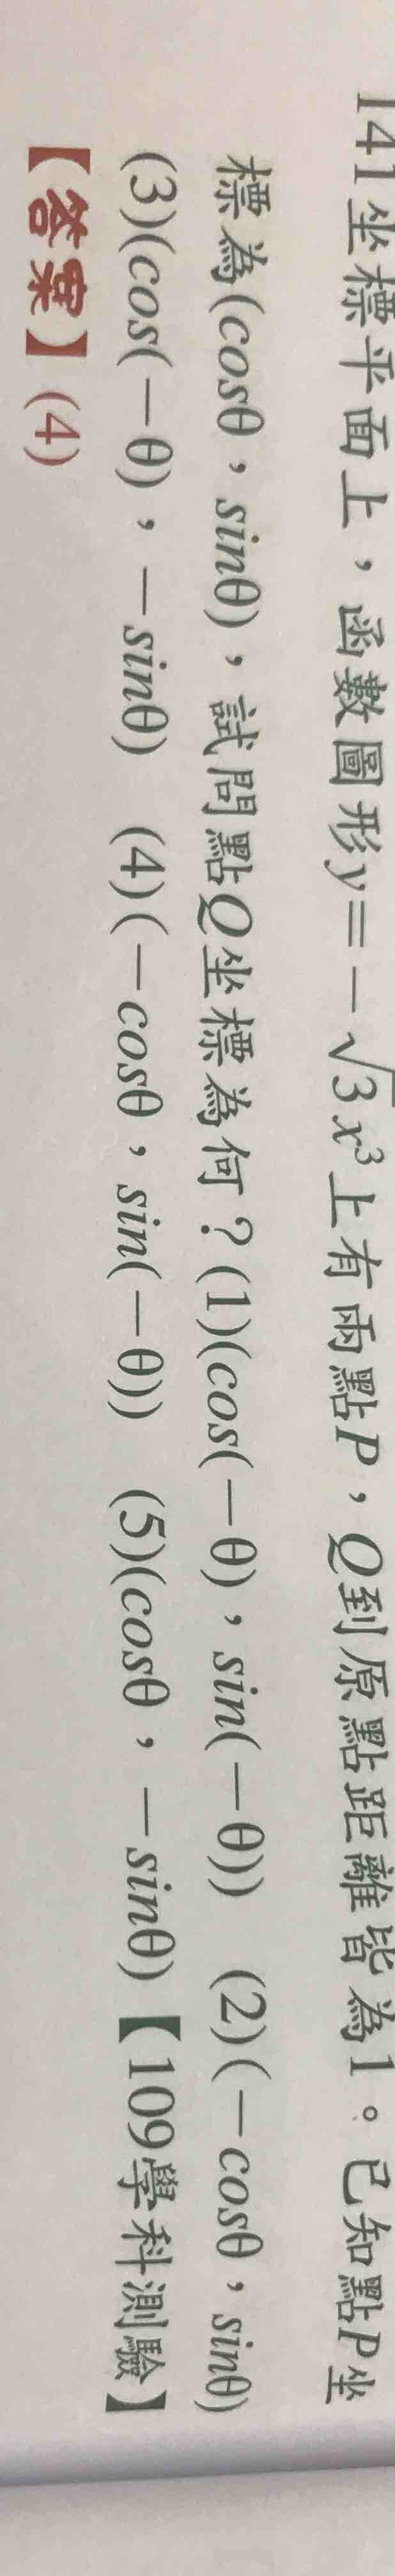 141坐標平面上，函數圖形y=－√3x³上有兩點P，Q到原點距離皆為1。已知點P坐
標為(cosθ，sinθ)，試問點Q坐標為何？(1)(cos(－θ)，sin(－θ)) (2)(－cosθ，sinθ)
(3)(cos(－θ)，－sinθ) (4)(－cosθ，sin(－θ)) (5)(cosθ，－sinθ)【109學科測驗】
【答案】(4)